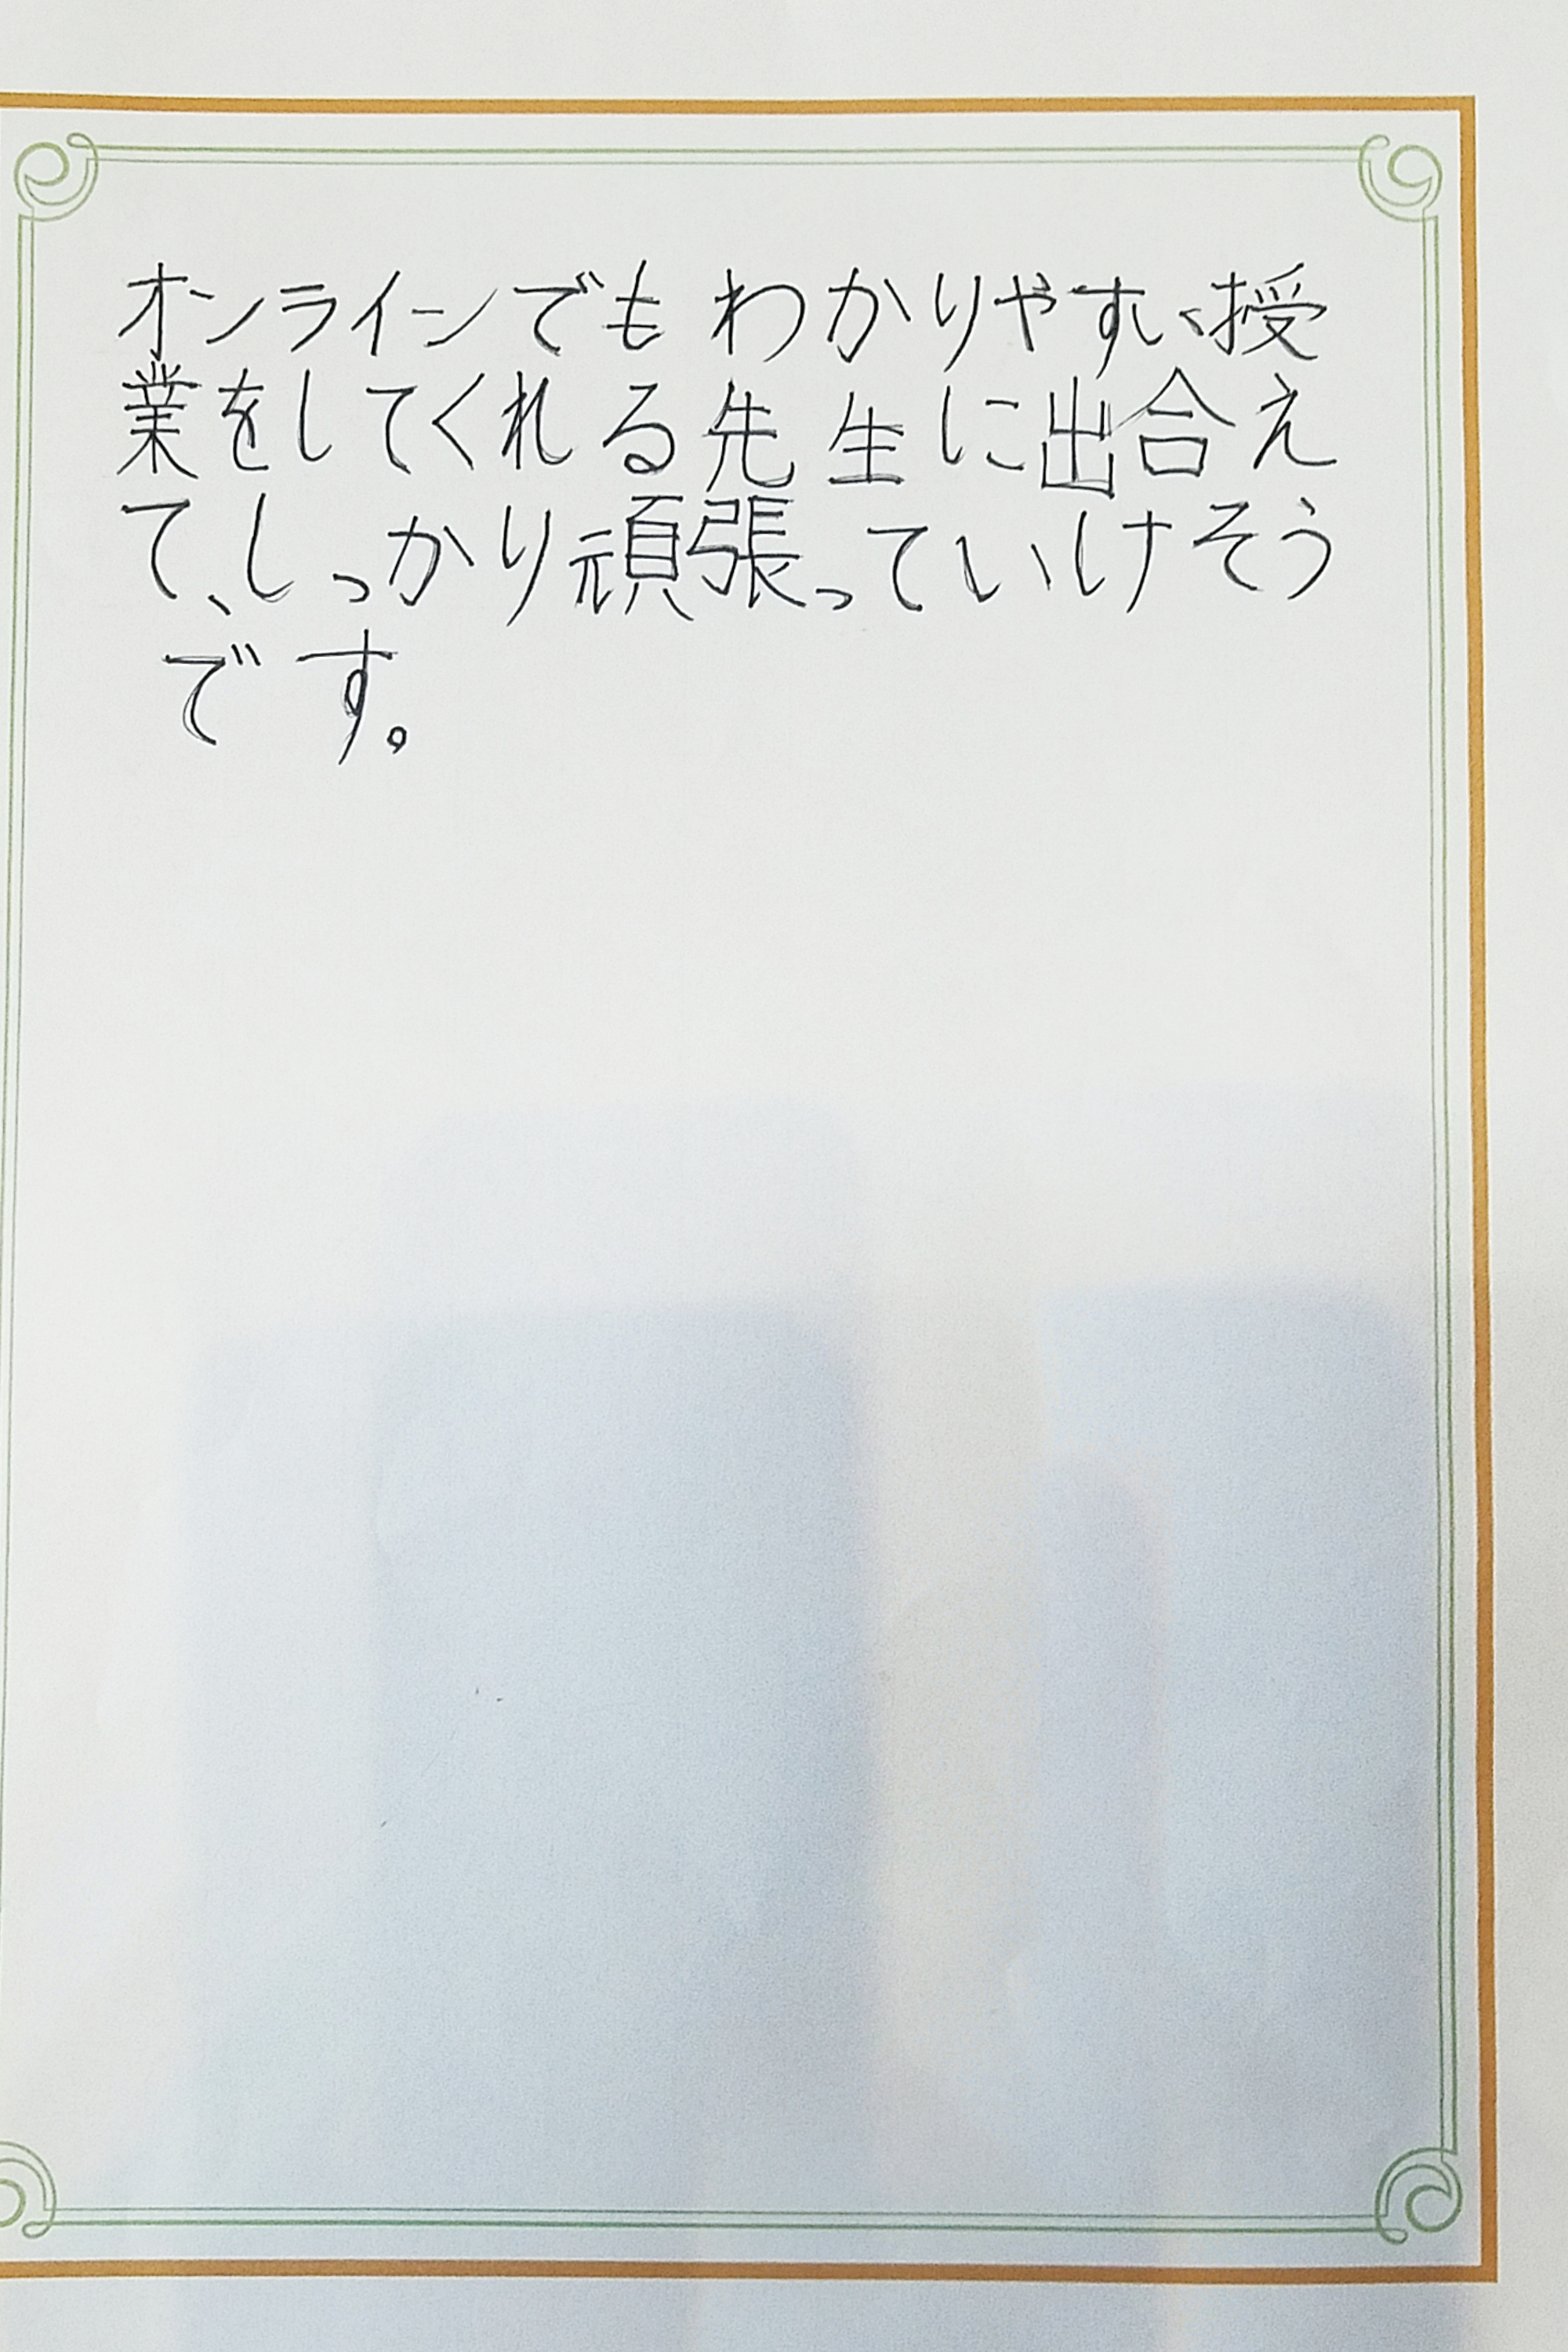 オンラインでもわかりやすい授
業をしてくれる先生に出合え
て、しっかり頑張っていけそう
です。